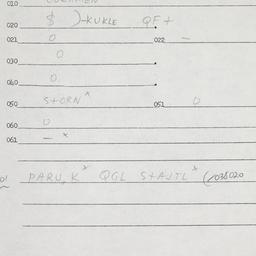 010
020 $ )-KUKLE QF+
021 0 022 —
030 0
040 0
050 S+ORN* 051 0
060 0
061 — *
PARU,K* QGL S+AJTL* (038020